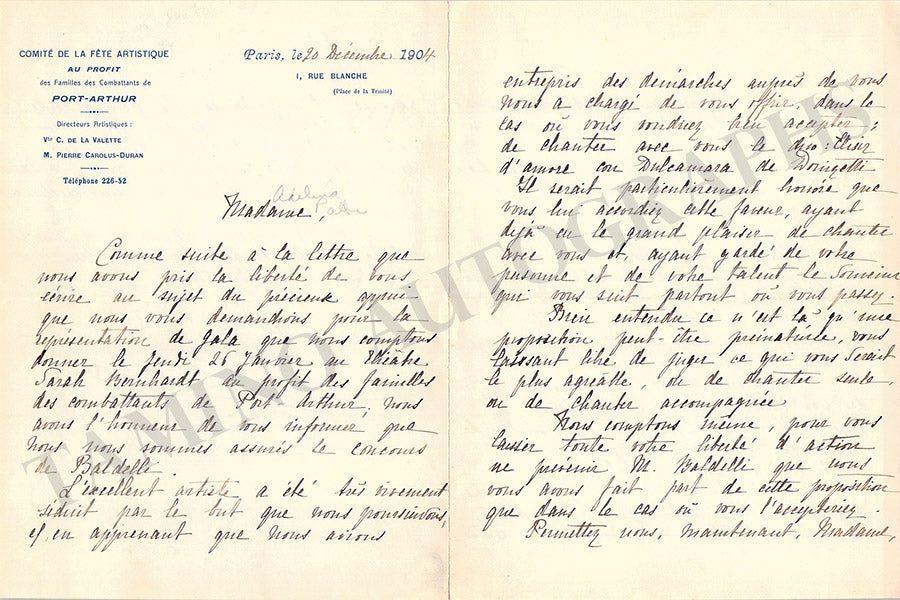 COMITÉ DE LA FÊTE ARTISTIQUE
AU PROFIT
des Familles des Combattants de
PORT-ARTHUR
Directeurs Artistiques :
Vte C. DE LA VALETTE
M. PIERRE CAROLUS-DURAN
Téléphone 226-52
Paris, le 20 Décembre 1904
1, RUE BLANCHE
(Place de la Trinité)
Adelina
Patti
Madame,
Comme suite à la lettre que
nous avons pris la liberté de vous
écrire au sujet du précieux appui
que nous vous demandions pour la
représentation de Gala que nous comptons
donner le Jeudi 26 Janvier au Théâtre
Sarah Bernhardt au profit des familles
des combattants de Port Arthur, nous
avons l'honneur de vous informer que
nous nous sommes assurés le concours
de Baldelli.
L'excellent artiste a été très vivement
séduit par le but que nous poursuivons,
et, en apprenant que nous avions
entrepris des démarches auprès de vous
nous a chargé de vous offrir, dans le
cas où vous voudriez bien accepter;
de chanter avec vous le duo: Elisir
d'amore con Dulcamara de Donizetti
Il serait particulièrement honoré que
vous lui accordiez cette faveur, ayant
déjà eu le grand plaisir de chanter
avec vous et, ayant gardé de votre
personne et de votre talent le Souvenir
qui vous suit partout où vous passez.
Bien entendu ce n'est là qu'une
proposition peut-être prématurée, vous
laissant libre de juger ce que vous serait
le plus agréable, ou de chanter seule,
ou de chanter accompagnée
Nous comptons même, pour vous
laisser toute votre liberté d'action
ne prévenir M. Baldelli que nous
vous avons fait part de cette proposition
que dans le cas où vous l'accepteriez.
Permettez nous, maintenant, Madame,
TAMINO AUTOGRAPHS